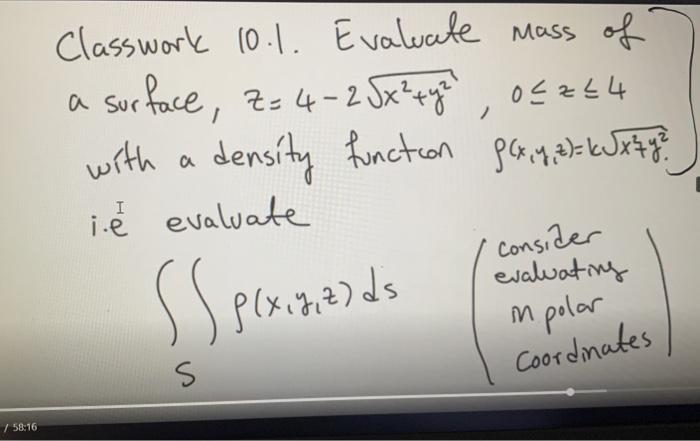 Classwork 10.1. Evaluate mass of
a surface, z = 4 - 2√x²+y², 0 ≤ z ≤ 4
with a density function ρ(x,y,z)=k√x²+y².
i.e evaluate
∫∫ ρ(x,y,z) ds
S
(consider
evaluating
in polar
coordinates)
/ 58:16